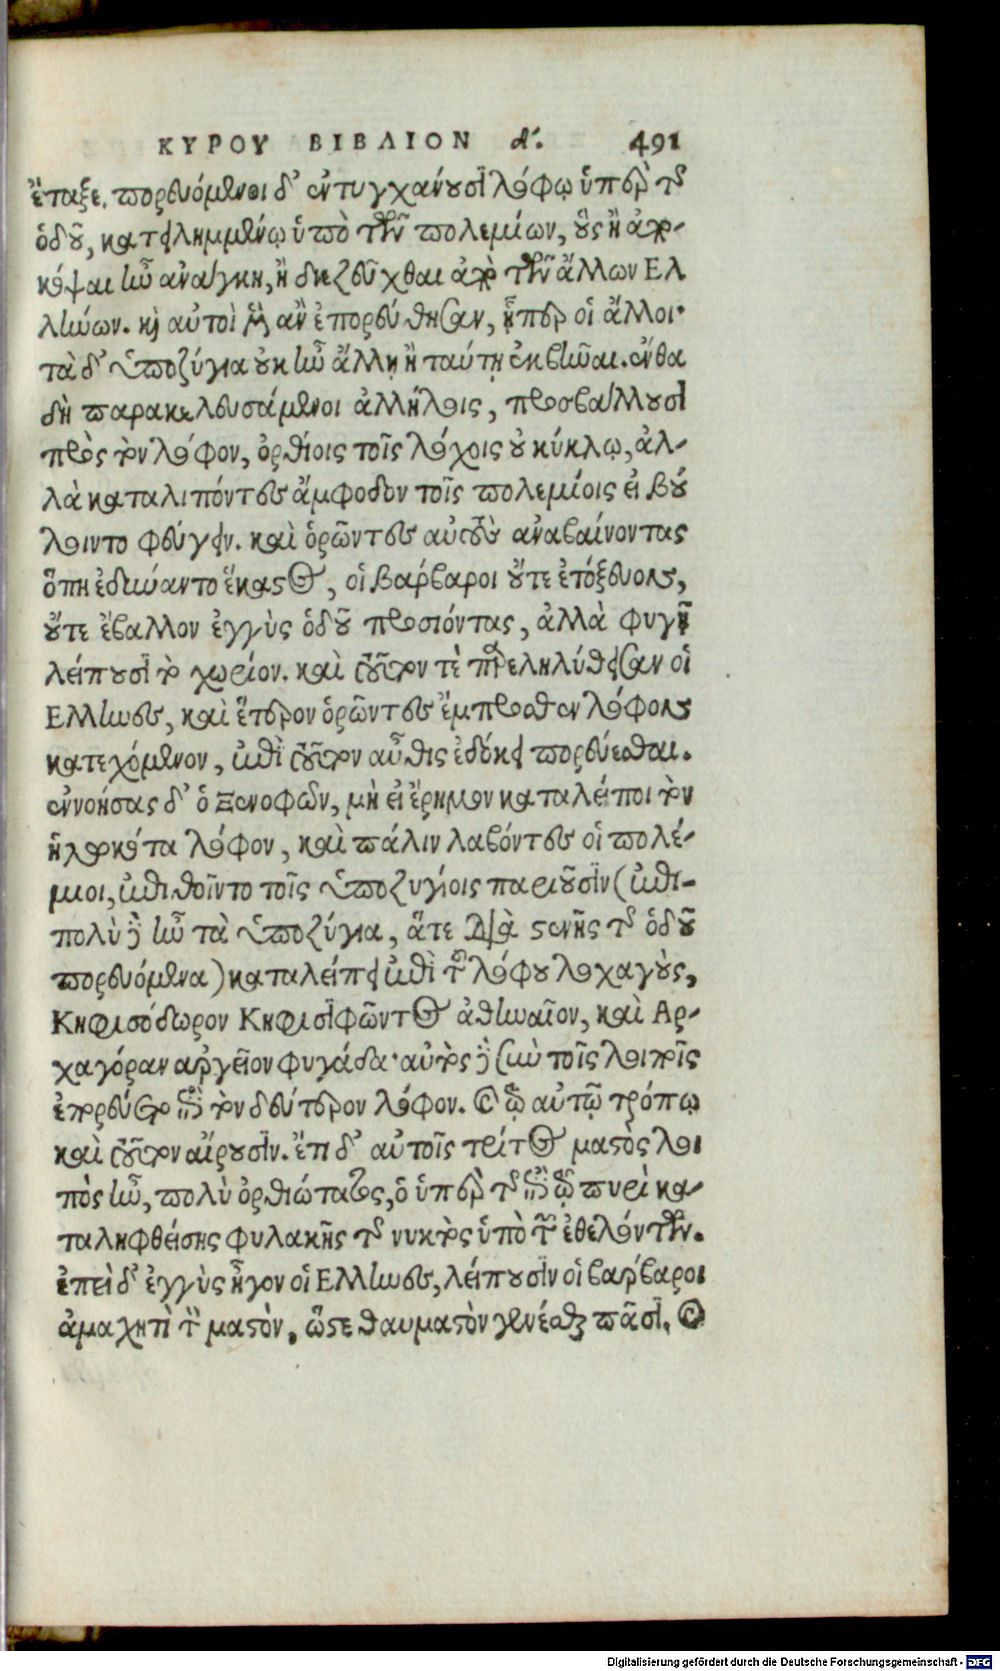 ΚΥΡΟΥ ΒΙΒΛΙΟΝ δ'. 491
ἔταξε. πορευόμενοι δ' ἐντυγχάνουσι λόφῳ ὑπὲρ τῆς
ὁδοῦ, κατειλημμένῳ ὑπὸ τῶν πολεμίων, οὓς ἢ ἀπο-
κόψαι ἦν ἀνάγκη, ἢ διεζεῦχθαι ἀπὸ τῶν ἄλλων Ελ
λήνων. καὶ αὐτοὶ μὲν ἂν ἐπορεύθησαν, ᾗπερ οἱ ἄλλοι·
τὰ δ' ὑποζύγια οὐκ ἦν ἄλλῃ ἢ ταύτῃ ἐκβῆναι. ἔνθα
δὴ παρακελευσάμενοι ἀλλήλοις, προσβάλλουσι
πρὸς τὸν λόφον, ὀρθίοις τοῖς λόχοις οὐ κύκλῳ, ἀλ-
λὰ καταλιπόντες ἄμφοδον τοῖς πολεμίοις εἰ βού
λοιντο φεύγειν. καὶ ὁρῶντες αὐτοὺς ἀναβαίνοντας
ὅπη ἐδύναντο ἕκαστος, οἱ βάρβαροι οὔτε ἐτόξευον,
οὔτε ἔβαλλον ἐγγὺς ὁδοῦ προσιόντας, ἀλλὰ φυγῇ
λείπουσι τὸ χωρίον. καὶ τοῦτόν τε παρεληλύθεισαν οἱ
Ελληνες, καὶ ἕτερον ὁρῶντες ἔμπροσθεν λόφον
κατεχόμενον, ἐπὶ τοῦτον αὖθις ἐδόκει πορεύεσθαι.
ἐννοήσας δ' ὁ Ξενοφῶν, μὴ εἰ ἔρημον καταλείποι τὸν
ἡλωκότα λόφον, καὶ πάλιν λαβόντες οἱ πολέ-
μιοι, ἐπιθοῖντο τοῖς ὑποζυγίοις παριοῦσιν (ἐπι-
πολὺ δὲ ἦν τὰ ὑποζύγια, ἅτε διὰ στενῆς τῆς ὁδοῦ
πορευόμενα) καταλείπει ἐπὶ τοῦ λόφου λοχαγοὺς,
Κηφισόδωρον Κηφισιφῶντος ἀθηναῖον, καὶ Αρ-
χαγόραν ἀργεῖον φυγάδα· αὐτὸς δὲ σὺν τοῖς λοιποῖς
ἐπορεύετο ἐπὶ τὸν δεύτερον λόφον. καὶ τῷ αὐτῷ τρόπῳ
καὶ τοῦτον αἴρουσιν. ἔτι δ' αὐτοῖς τρίτος μαστὸς λοι
πὸς ἦν, πολὺ ὀρθιώτατος, ὁ ὑπὲρ τῆς ἐπὶ τῷ πυρὶ κα-
ταληφθείσης φυλακῆς τῆς νυκτὸς ὑπὸ τῶν ἐθελόντων.
ἐπεὶ δ' ἐγγὺς ἦγον οἱ Ελληνες, λείπουσιν οἱ βάρβαροι
ἀμαχητὶ τὸν μαστὸν, ὥστε θαυμαστὸν γενέσθαι πᾶσι. καὶ
Digitalisierung gefördert durch die Deutsche Forschungsgemeinschaft - DFG